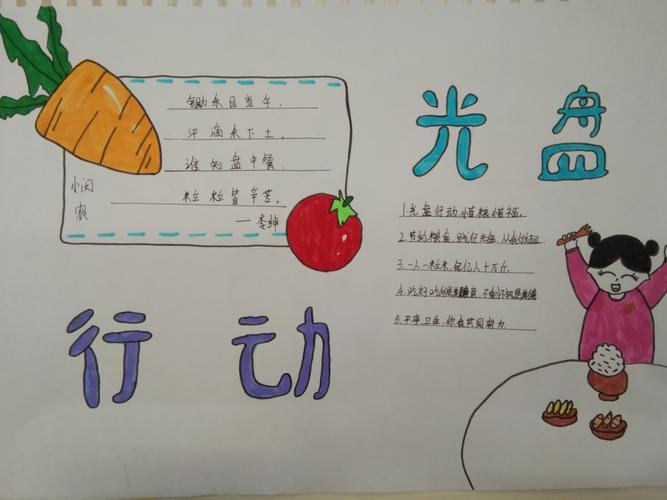 光盘
行动
锄禾日当午.
汗滴禾下土。
谁知盘中餐.
粒粒皆辛苦。
悯农
一李绅
1.光盘行动,惜粮惜福.
2.节约粮食,践行光盘,从我做起
3.一人一粒米,亿人十万斤
4.吃好吃饱是美 是美德
5.干净卫生,你我共同努力